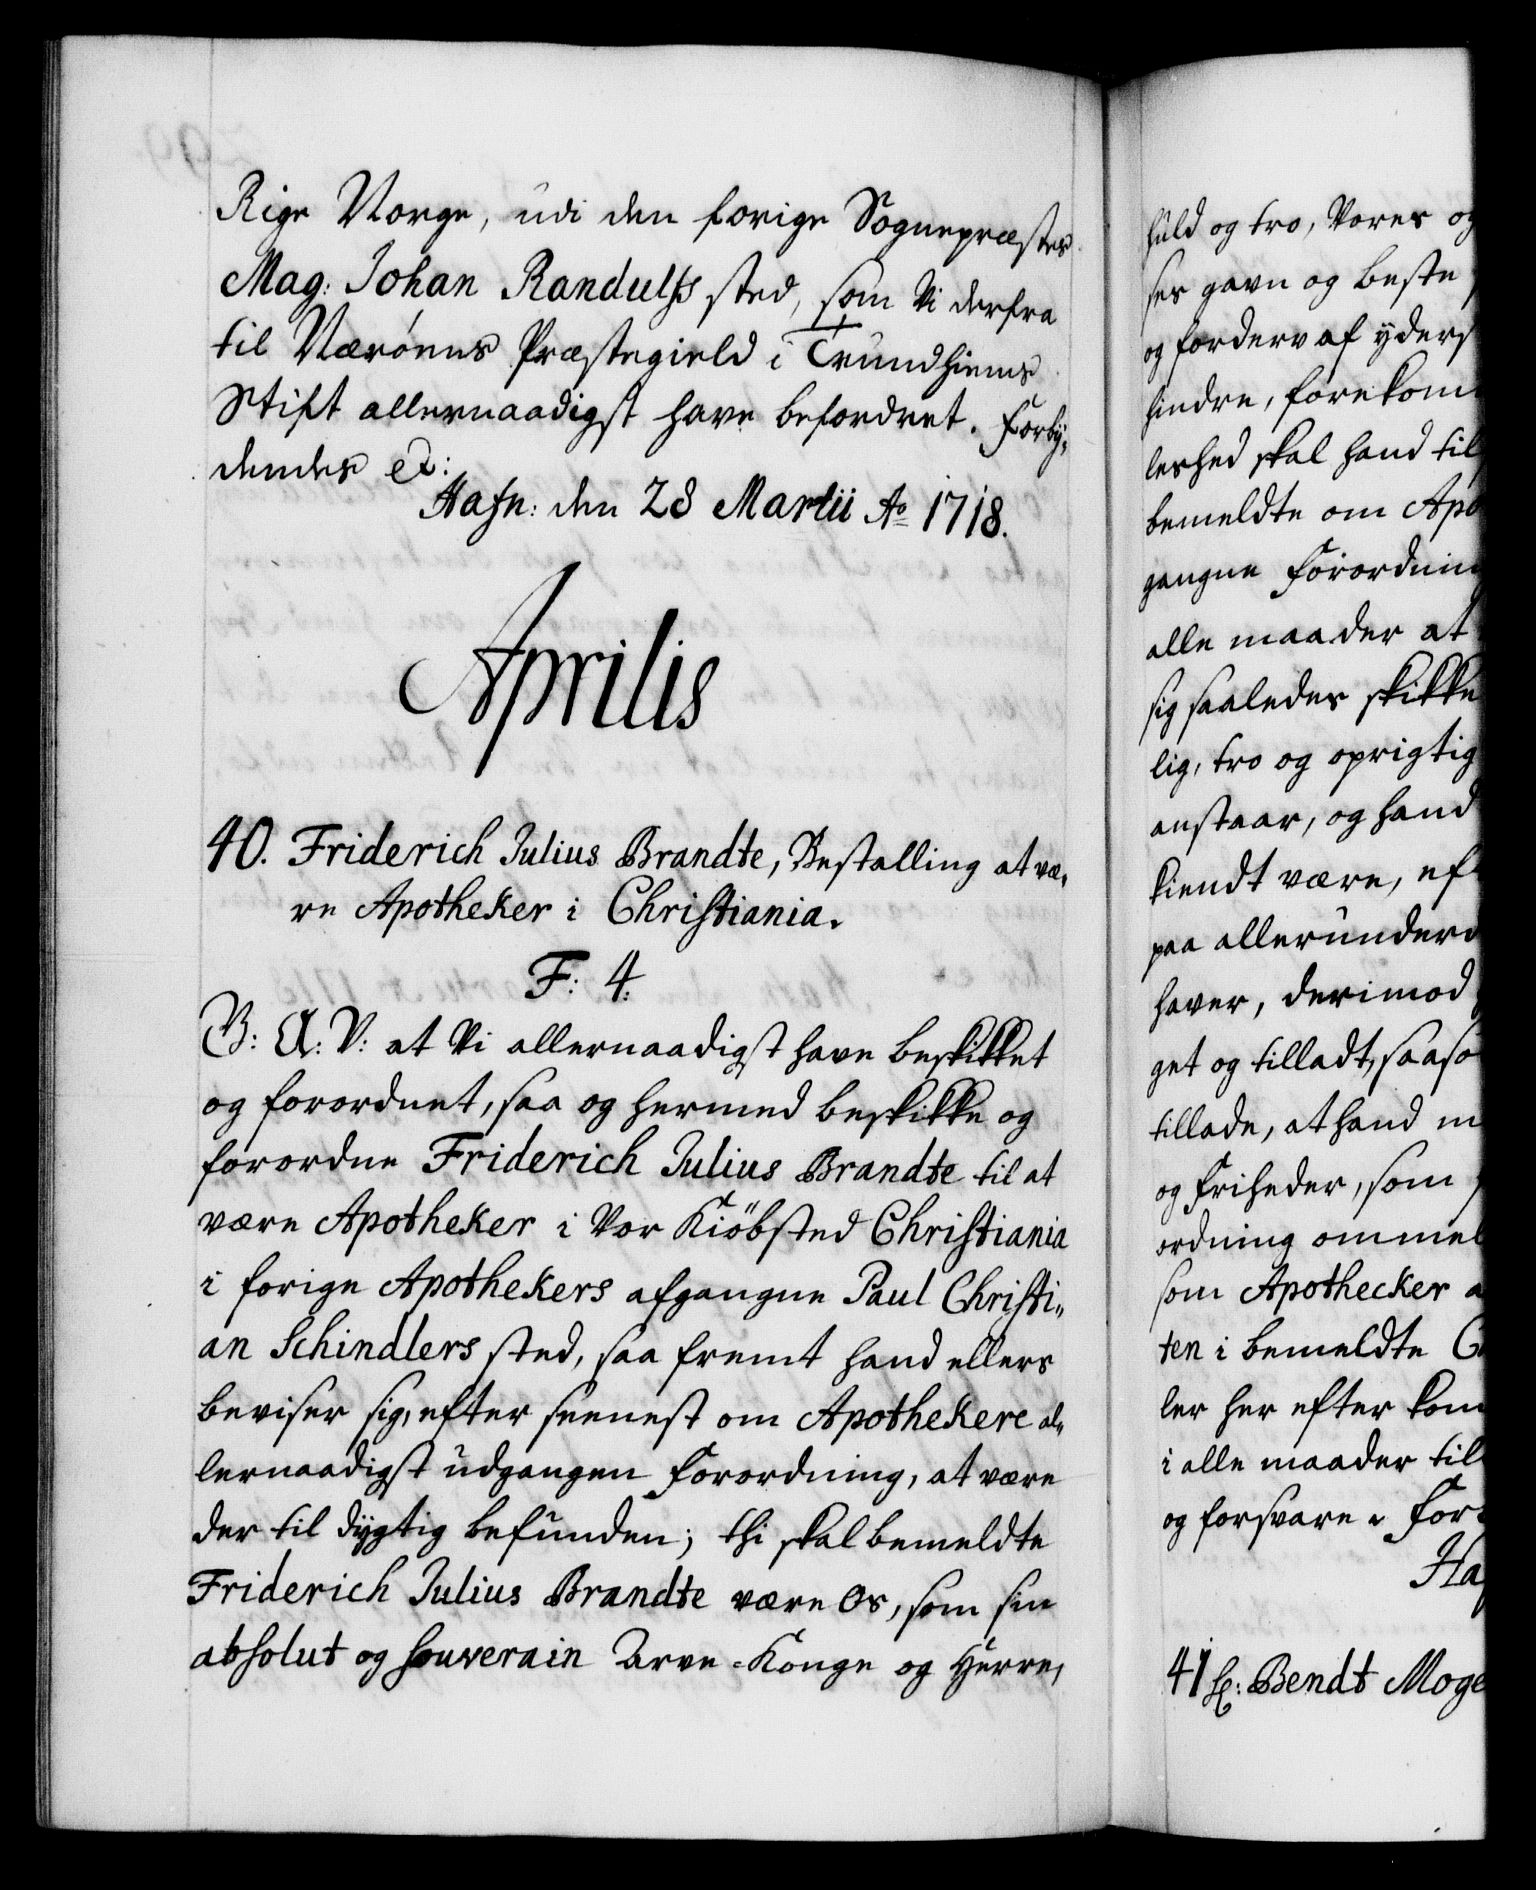 Rige Norge, udi den forige Sognepræstes
Mag: Johan Randulfs sted, som Vi derfra
til Nærøens Præstegield i Trundhiems
Stift allernaadigst have befordret. Forby,
dendes etc:
Hafn: den 28 Martii Ao 1718.
Aprilis
40. Friderich Julius Brandte, Bestalling at væ,
re Apotheker i Christiania.
F: 4.
G: A: V: at Vi allernaadigst have beskikket
og forordnet, saa og hermed beskikke og
forordne Friderich Julius Brandte til at
være Apotheker i Vor Kiøbsted Christiania
i forige Apothekers afgangne Paul Christi„
an Schindlers sted, saa fremt hand ellers
beviser sig, efter seenest om Apothekere al„
lernaadigst udgangen Forordning, at være
der til dygtig befunden; thi skal bemeldte
Friderich Julius Brandte være Os, som sin
absolut og souverain Arve-Konge og Herre,
huld og tro, Vores og
ses gavn og beste
og forderv af yders
hindre, forekom
leshed skal hand til
bemeldte om Apo
gangne Forordnin
alle maader at
sig saaledes skikke
lig, tro og oprigtig
anstaar, og hand
kiendt være, ef
paa allerunderd
haver, derimod
get og tilladt, saaso
tillade, at hand m
og friheder, som
ordning ommel
som Apothecker a
ten i bemeldte C
ler her efter kom
i alle maader til
og forsvare. For
Haf
41 Hr: Bendt Moge